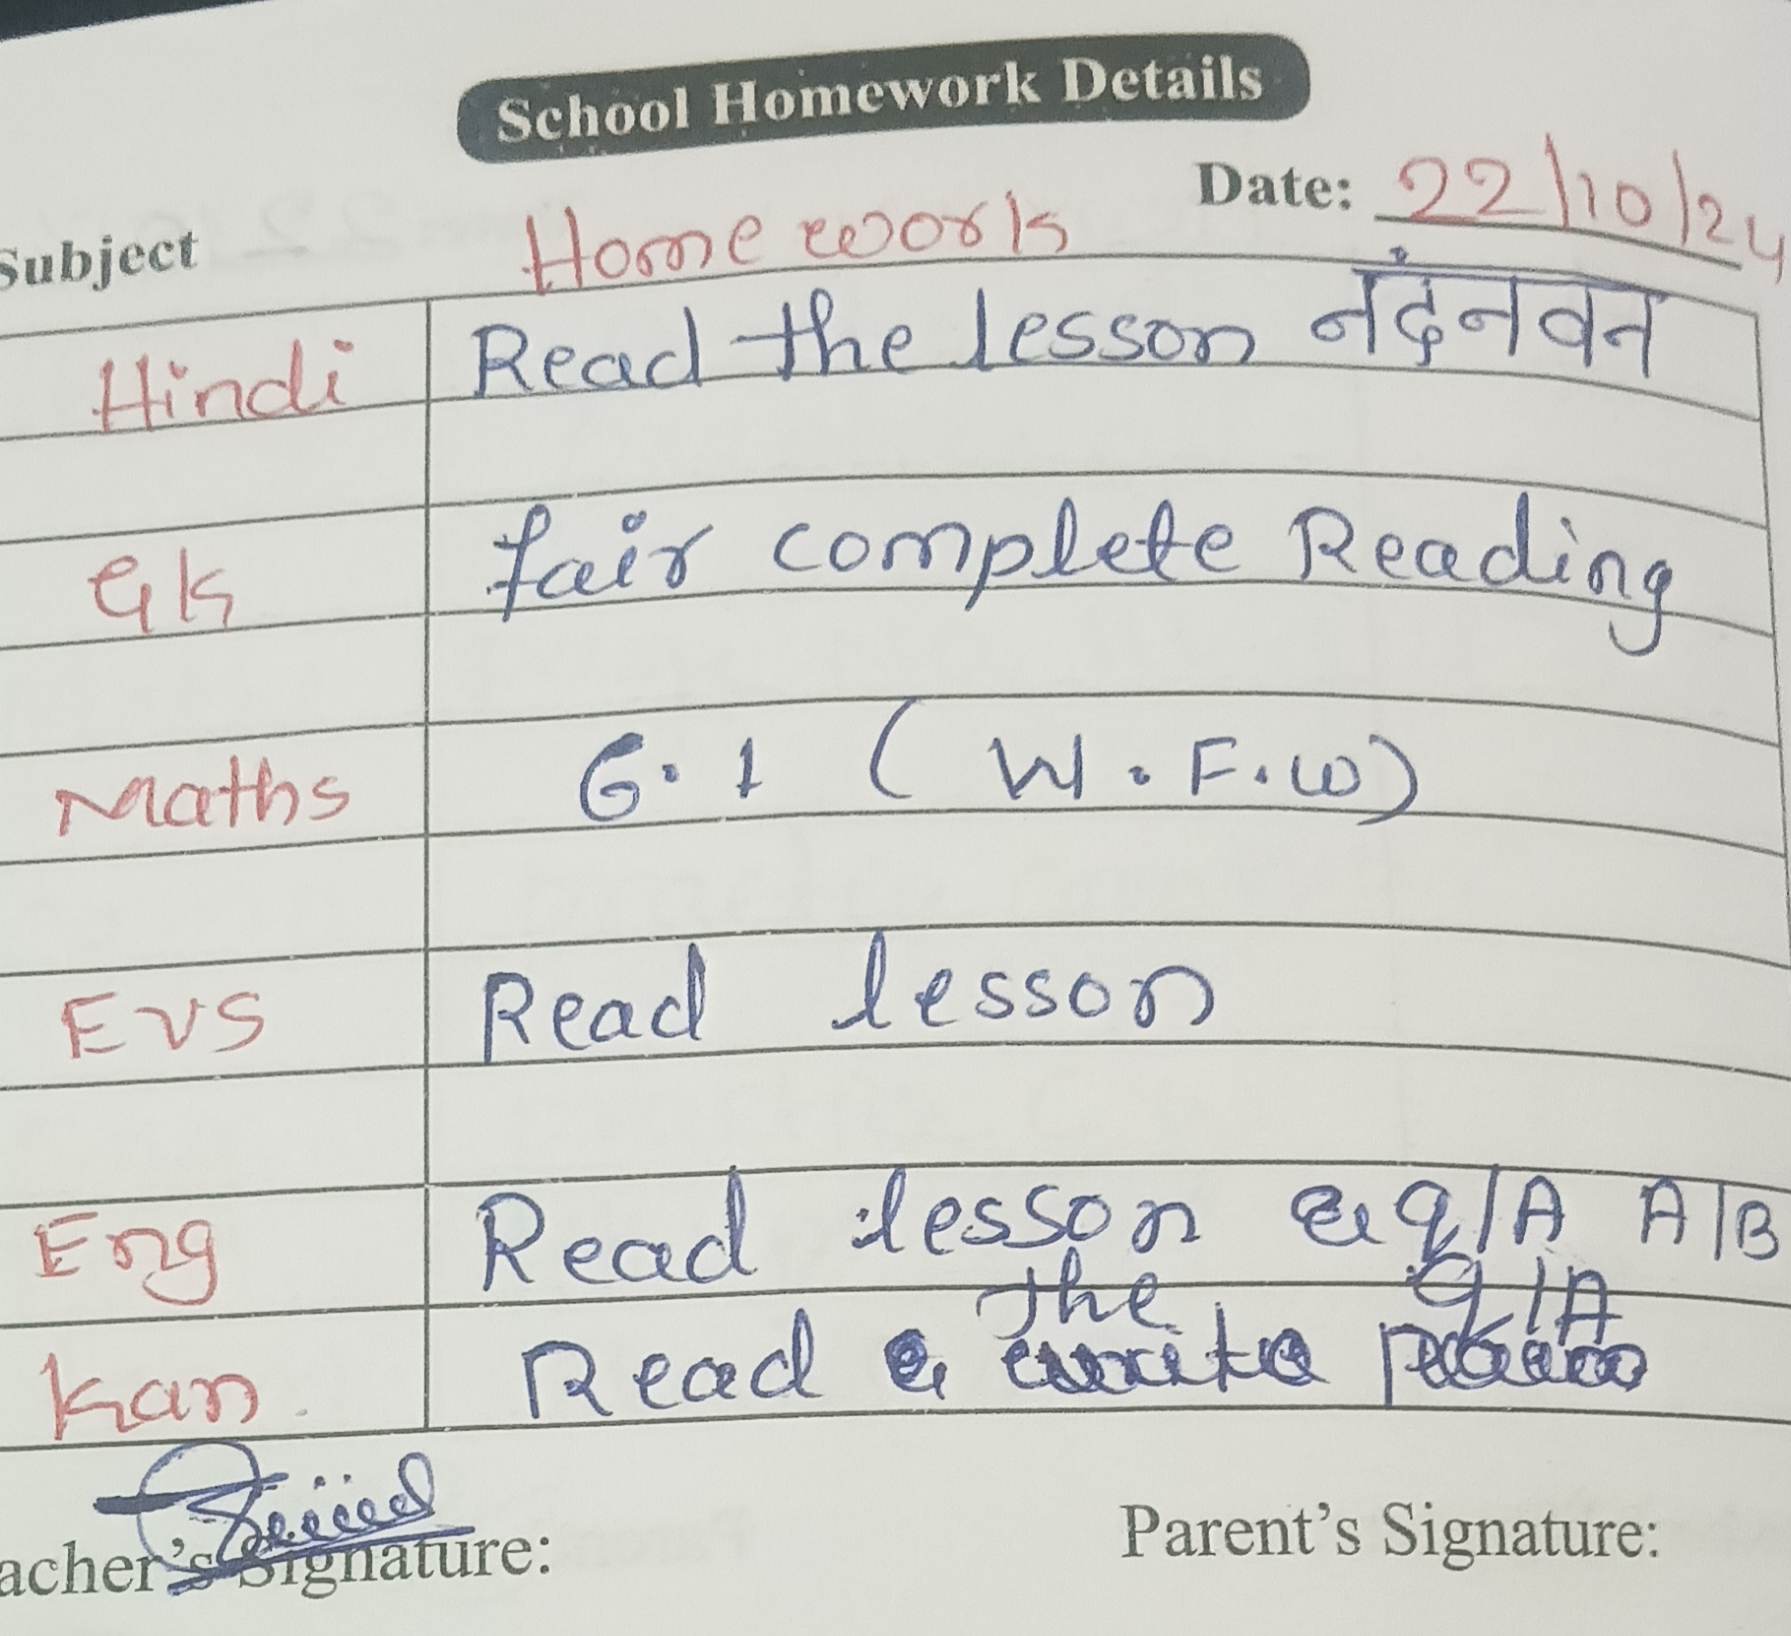 School Homework Details
Date: 22/10/24
Subject Homework
Hindi Read the lesson नंदनवन
GK fair complete Reading
Maths 6.1 (W.F.W)
EVS Read lesson
Eng Read lesson & q/A A/B
Kan Read the q/A
acher's Signature: Parent's Signature: